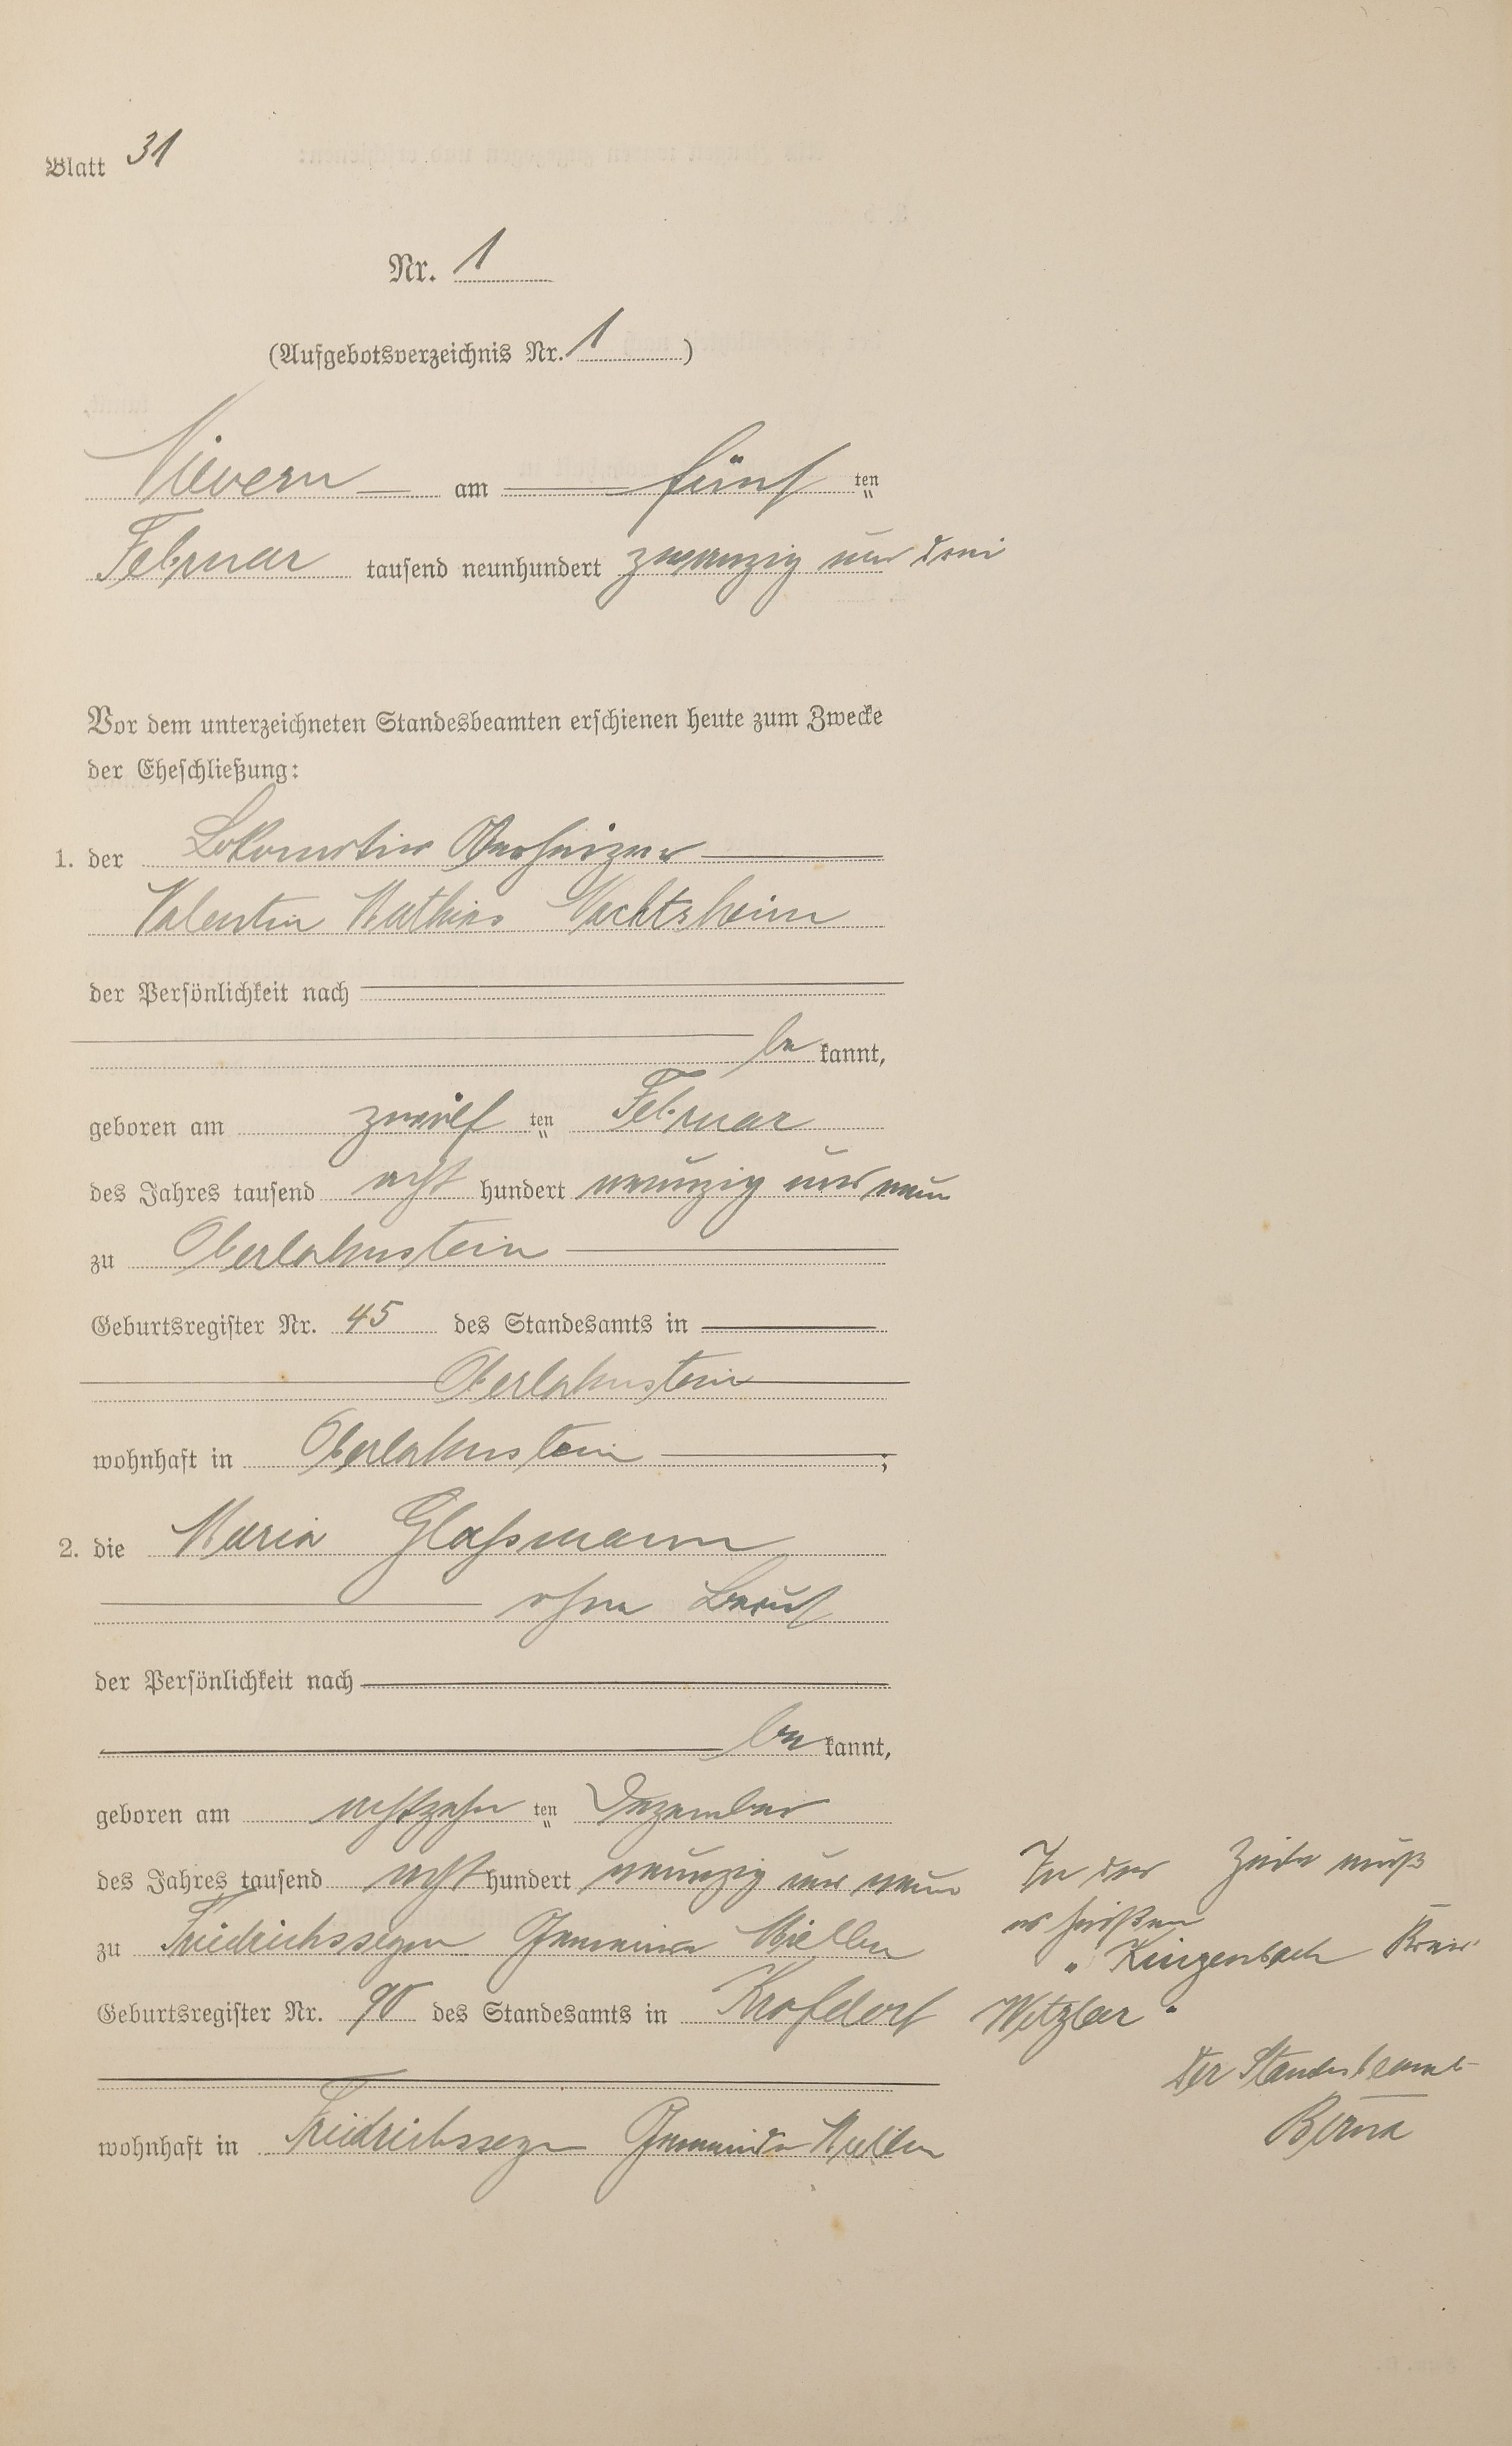 Blatt 31
Nr. 1
(Aufgebotsverzeichnis Nr. 1)
Nievern am fünf ten
Februar tausend neunhundert zwanzig und drei
Vor dem unterzeichneten Standesbeamten erschienen heute zum Zwecke
der Eheschließung:
1. der Lokomotiv
Valentin Mathias Wachtsheim
der Persönlichkeit nach
be kannt,
geboren am zwölf ten Februar
des Jahres tausend acht hundert neunzig und neun
zu Oberlahnstein
Geburtsregister Nr. 45 des Standesamts in
Oberlahnstein
wohnhaft in Oberlahnstein ;
2. die Maria Glaßmann
ohne Beruf
der Persönlichkeit nach
be kannt,
geboren am achtzehn ten Dezember
des Jahres tausend acht hundert neunzig und neun
zu Friedrichssegen Gemeinde Miellen
Geburtsregister Nr. 90 des Standesamts in Krofdorf
wohnhaft in Friedrichssegen Gemeinde Miellen
In der Zeile muß
es heißen
„ Kinzenbach Kreis
Wetzlar "
Der Standesbeamte